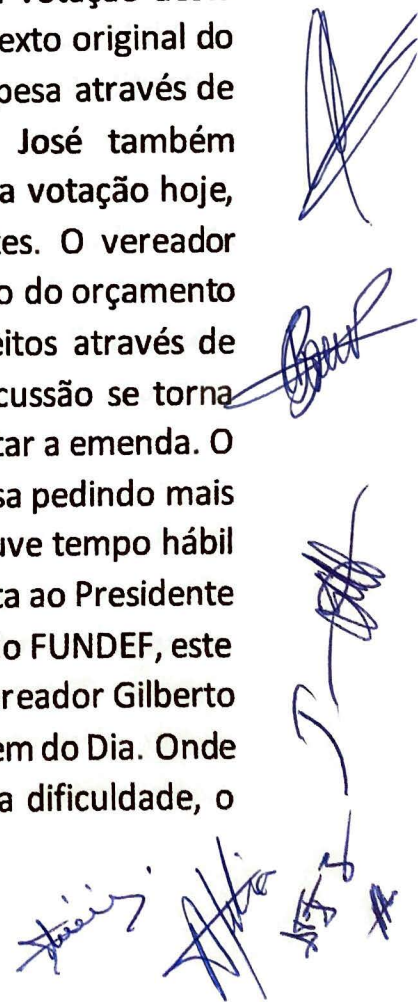 exto original do
pesa através de
José também
a votação hoje,
tes. O vereador
o do orçamento
eitos através de
cussão se torna
tar a emenda. O
sa pedindo mais
uve tempo hábil
ta ao Presidente
o FUNDEF, este
reador Gilberto
em do Dia. Onde
a dificuldade, o